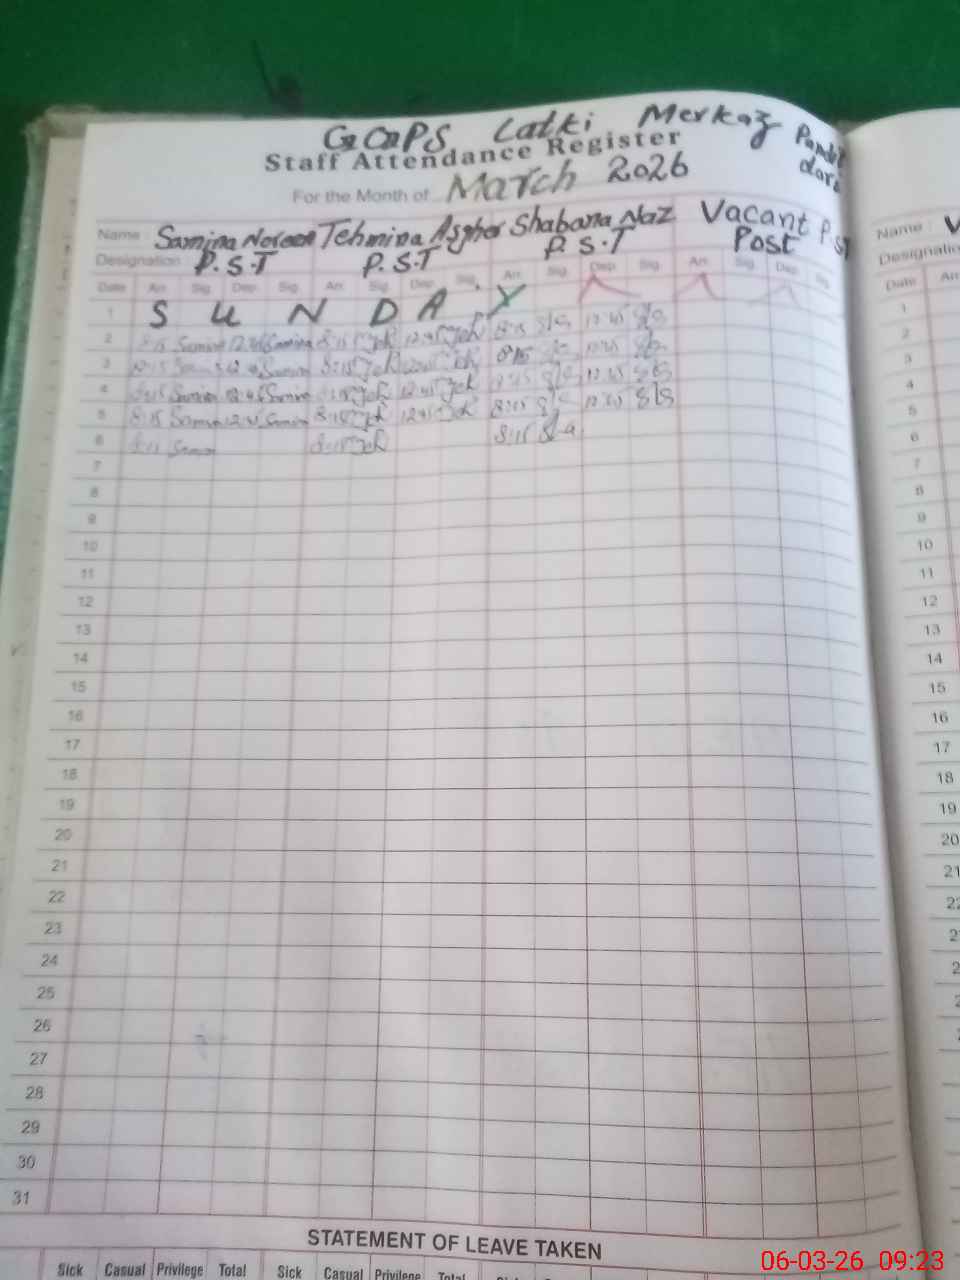 GGPS Latki Merkaz
Staff Attendance Register
For the Month of March 2026
Name : Samina Noreen Tehmina Asgher Shabana Naz Vacant P ST
Designation : P.S.T P.S.T P.S.T Post
Date Arr. Sig. Dep. Sig. Arr. Sig. Dep. Sig. Arr. Sig. Dep. Sig. Arr. Sig. Dep. Sig.
1 S U N D A Y
2 8:15 Samina 12:45 Samina 8:15 12:45 8:15 12:45
3 Samina 8:15 8:15 12:45
4 8:15 Samina 12:45 Samina 8:15 12:45 8:15 12:45
5 8:15 Samina 12:45 Samina 8:15 12:45 8:15 12:45
6 8:15 Samina 8:15 8:15
7
8
9
10
11
12
13
14
15
16
17
18
19
20
21
22
23
24
25
26
27
28
29
30
31
STATEMENT OF LEAVE TAKEN
Sick Casual Privilege Total Sick Casual Privilege Total
Name :
Designation
Date
1
2
3
4
5
6
7
8
9
10
11
12
13
14
15
16
17
18
19
20
21
06-03-26 09:23